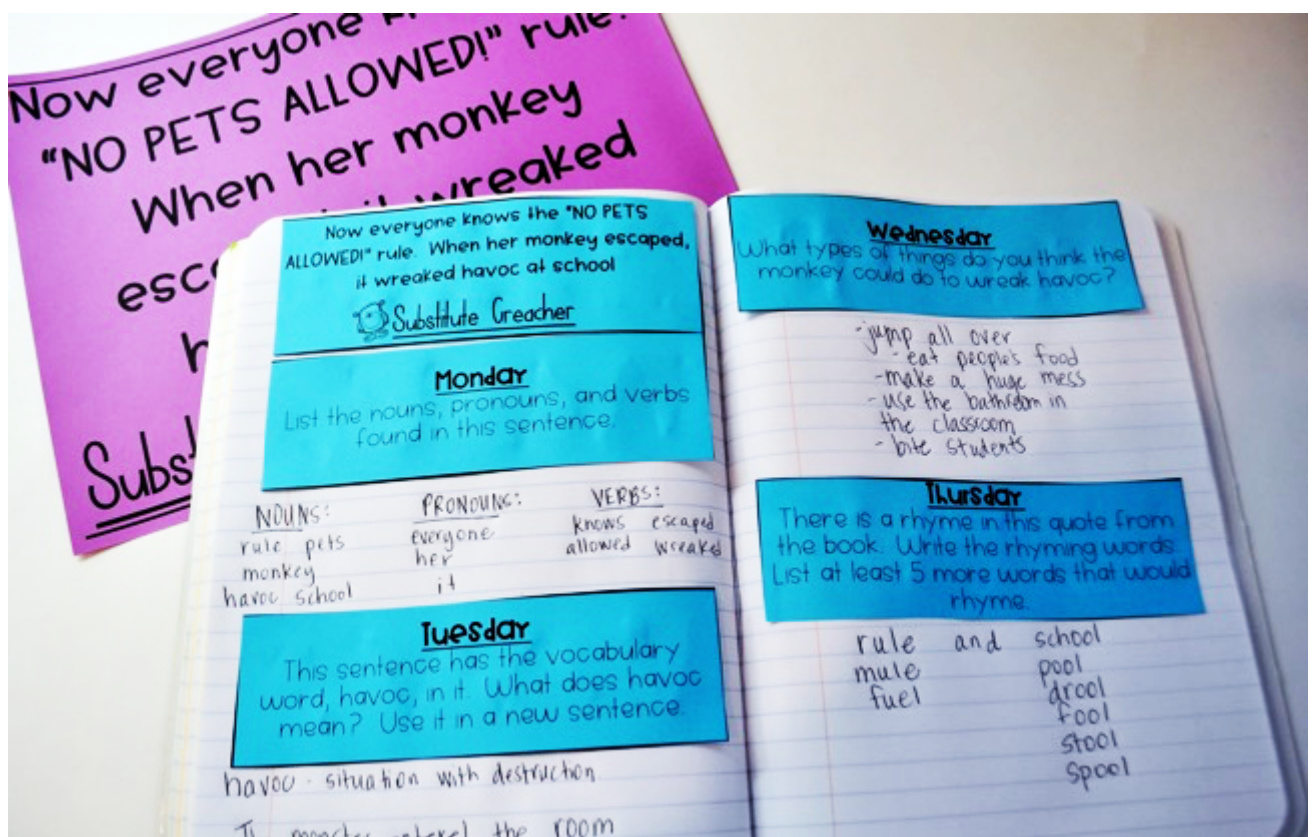 Now everyone
"NO PETS ALLOWED!" rule.
When her monkey
wreaked
esc
h
Subst
Now everyone knows the "NO PETS
ALLOWED!" rule. When her monkey escaped,
it wreaked havoc at school
Substitute Creacher
Monday
List the nouns, pronouns, and verbs
found in this sentence.
NOUNS:
rule pets
monkey
havoc school
PRONOUNS:
everyone
her
it
VERBS:
knows escaped
allowed wreaked
Tuesday
This sentence has the vocabulary
word, havoc, in it. What does havoc
mean? Use it in a new sentence.
havoc - situation with destruction
the room
Wednesday
What types of things do you think the
monkey could do to wreak havoc?
-jump all over
- eat people's food
-make a huge mess
- use the bathroom in
the classroom
- bite students
Thursday
There is a rhyme in this quote from
the book. Write the rhyming words.
List at least 5 more words that would
rhyme.
rule and school
mule pool
fuel drool
fool
stool
spool